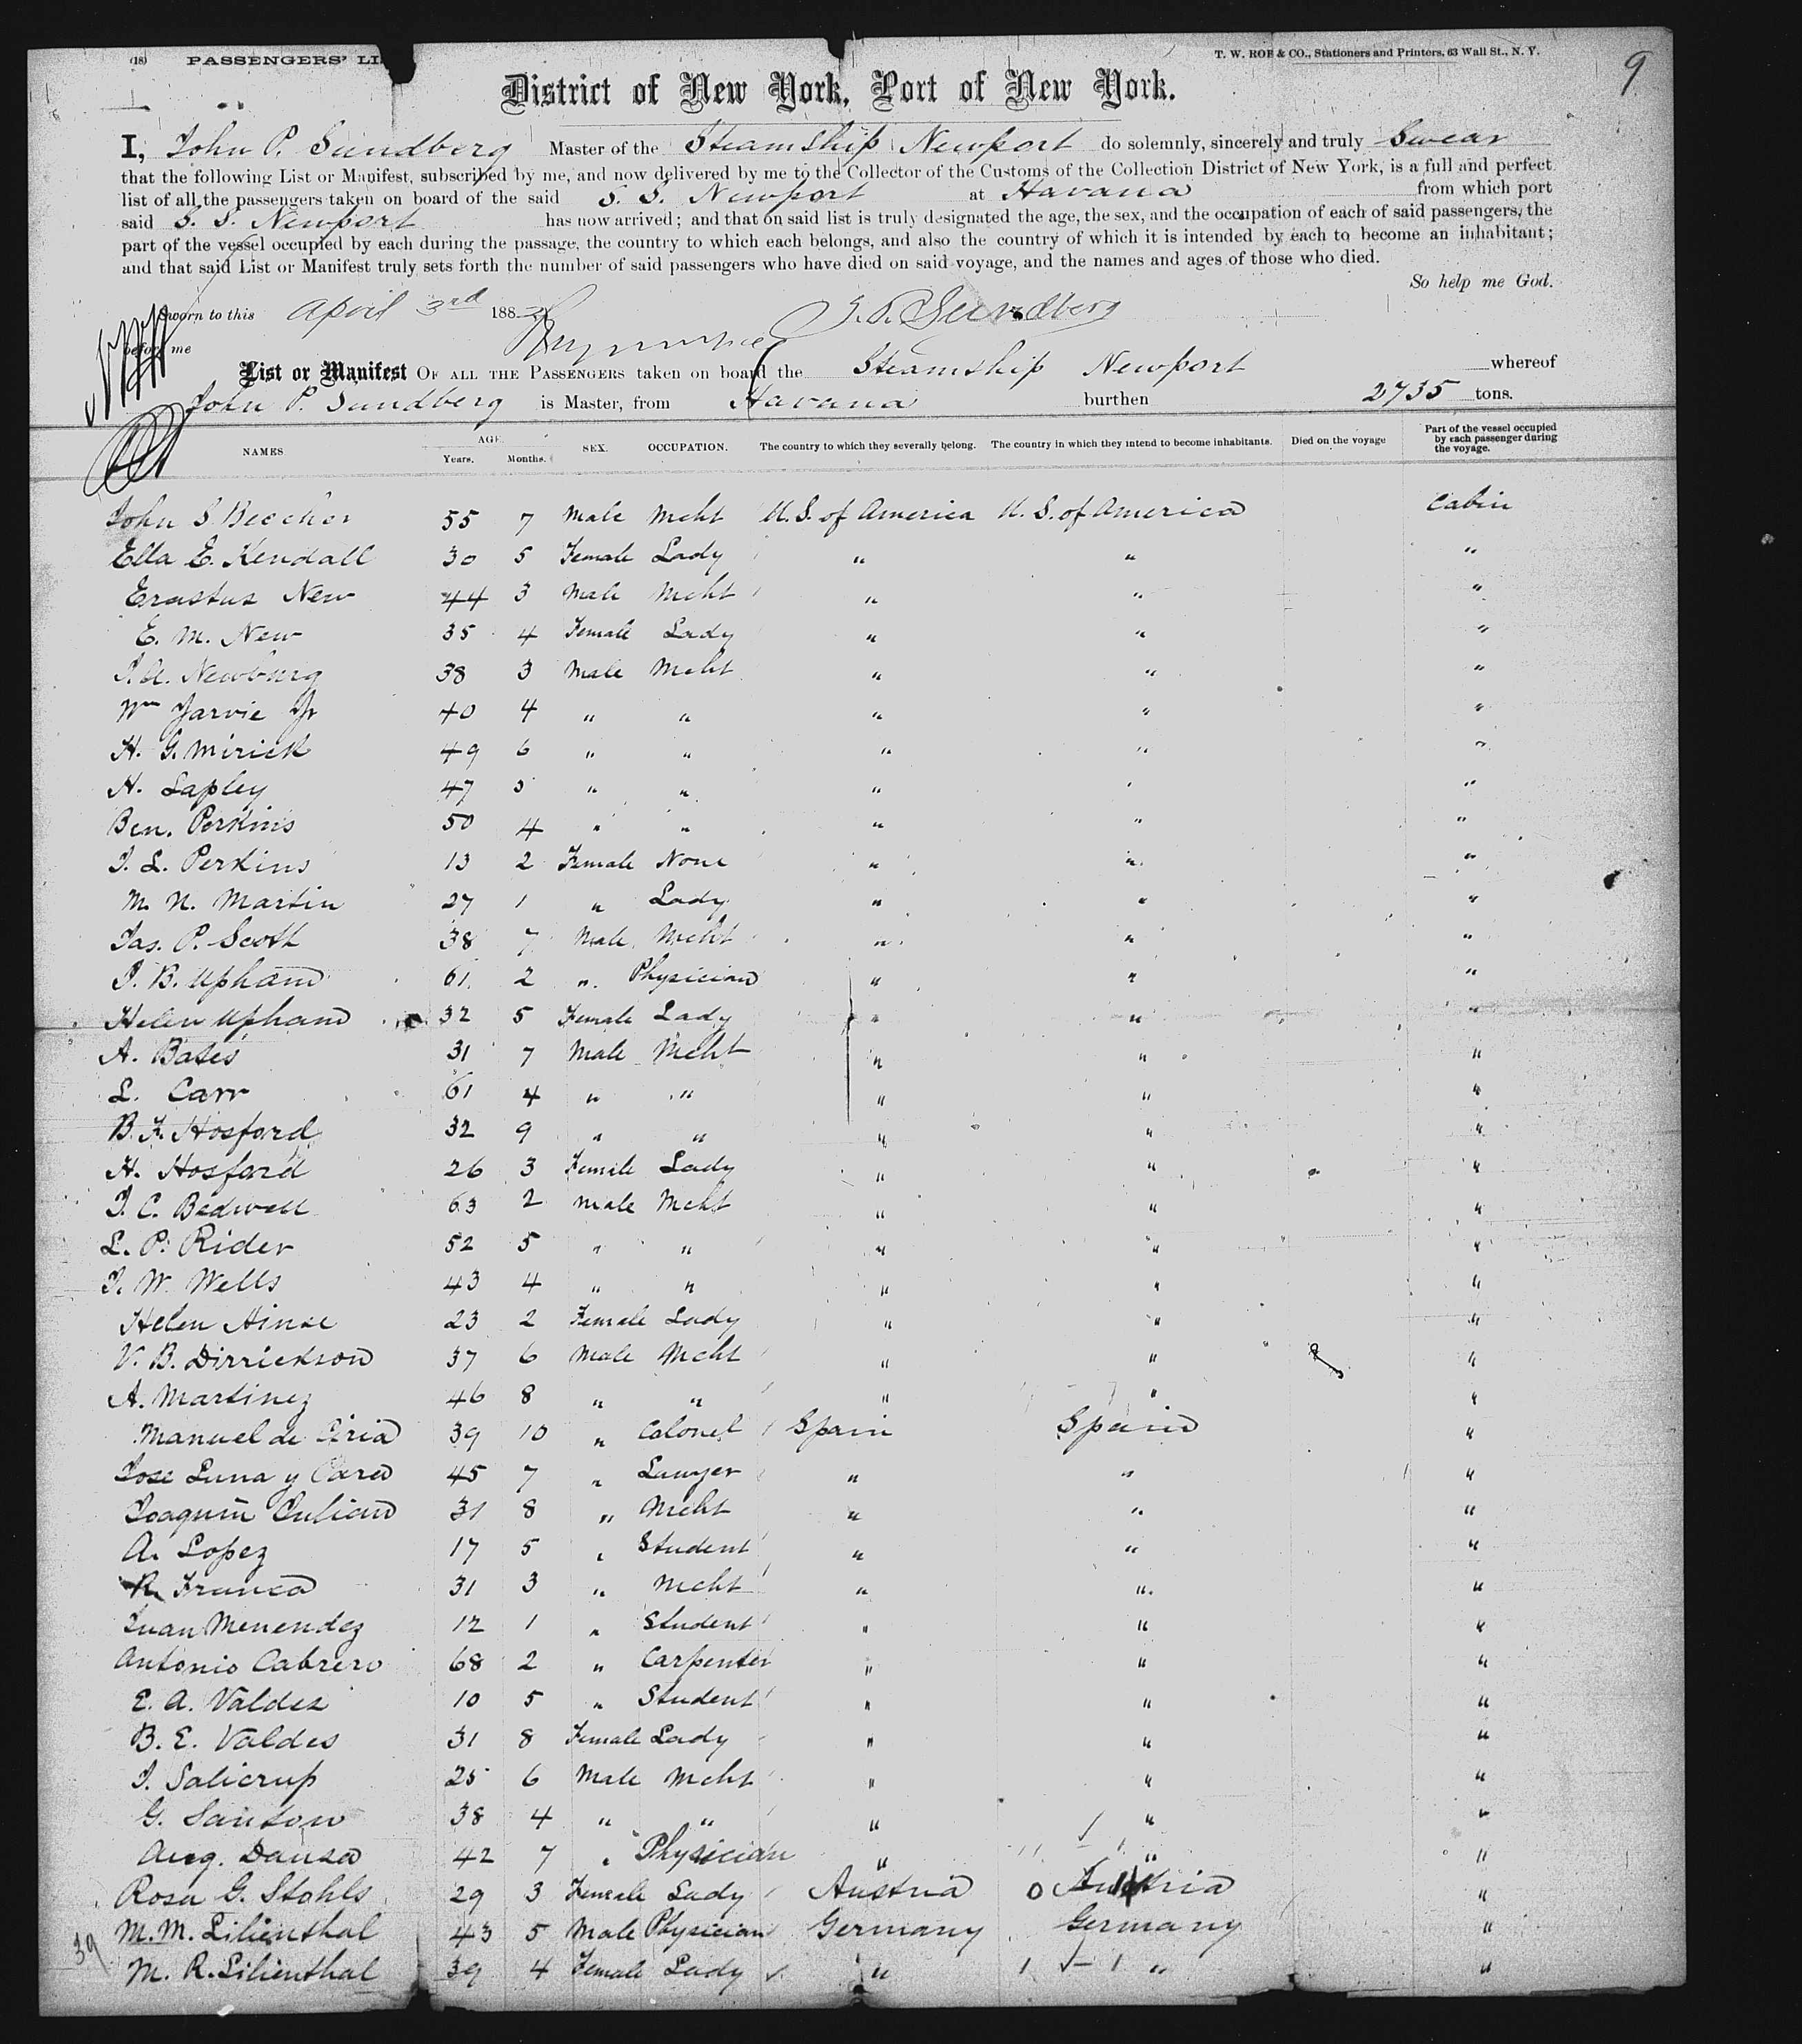 (18) PASSENGERS' LI
T. W. ROE & CO., Stationers and Printers, 63 Wall St., N. Y.
9
District of New York, Port of New York.
I, John P. Sundberg Master of the Steamship Newport do solemnly, sincerely and truly Swear
that the following List or Manifest, subscribed by me, and now delivered by me to the Collector of the Customs of the Collection District of New York, is a full and perfect
list of all the passengers taken on board of the said S. S. Newport at Havana from which port
said S. S. Newport has now arrived; and that on said list is truly designated the age, the sex, and the occupation of each of said passengers, the
part of the vessel occupied by each during the passage, the country to which each belongs, and also the country of which it is intended by each to become an inhabitant;
and that said List or Manifest truly sets forth the number of said passengers who have died on said voyage, and the names and ages of those who died.
So help me God.
Sworn to this April 3rd 188 J. P. Sundberg
before me
List or Manifest OF ALL THE PASSENGERS taken on board the Steamship Newport whereof
John P. Sundberg is Master, from Havana burthen 2735 tons.
NAMES AGE. Years. Months. SEX. OCCUPATION. The country to which they severally belong. The country in which they intend to become inhabitants. Died on the voyage Part of the vessel occupied by each passenger during the voyage.
John S. Beecher 55 7 Male Mcht U.S. of America U.S. of America Cabin
Ella E. Kendall 30 5 Female Lady " " "
Erastus New 44 3 Male Mcht " " "
E. M. New 35 4 Female Lady " " "
Newburg 38 3 Male Mcht " " "
Wm Jarvie Jr 40 4 " " " " "
H. G. Mirick 49 6 " " " " "
H. Lapley 47 5 " " " " "
Ben. Perkins 50 4 " " " " "
J. L. Perkins 13 2 Female None " " "
M. N. Martin 27 1 " Lady " " "
Jas. P. Scott 38 7 Male Mcht " " "
J. B. Upham 61 2 " Physician " " "
Helen Upham 32 5 Female Lady " " "
A. Bates 31 7 Male Mcht " " "
L. Carr 61 4 " " " " "
B. F. Hosford 32 9 " " " " "
H. Hosford 26 3 Female Lady " " "
J. C. Bedwell 63 2 Male Mcht " " "
L. P. Rider 52 5 " " " " "
J. W. Wells 43 4 " " " " "
Helen 23 2 Female Lady " " "
V. B. Dirrickson 37 6 Male Mcht " " "
A. Martinez 46 8 " " " " "
Manuel de Ciria 39 10 " Colonel Spain Spain "
Jose Luna y 45 7 " Lawyer " " "
Joaquin 31 8 " Mcht " " "
A. Lopez 17 5 " Student " " "
R. Franca 31 3 " Mcht " " "
Juan Menendez 12 1 " Student " " "
Antonio Cabrero 68 2 " Carpenter " " "
E. A. Valdes 10 5 " Student " " "
B. E. Valdes 31 8 Female Lady " " "
J. Salicrup 25 6 Male Mcht " " "
G. 38 4 " " " " "
Aug. 42 7 " Physician " " "
Rosa G. Stohls 29 3 Female Lady Austria Austria "
M. M. Lilienthal 43 5 Male Physician Germany Germany "
39 M. R. Lilienthal 39 4 Female Lady " " "